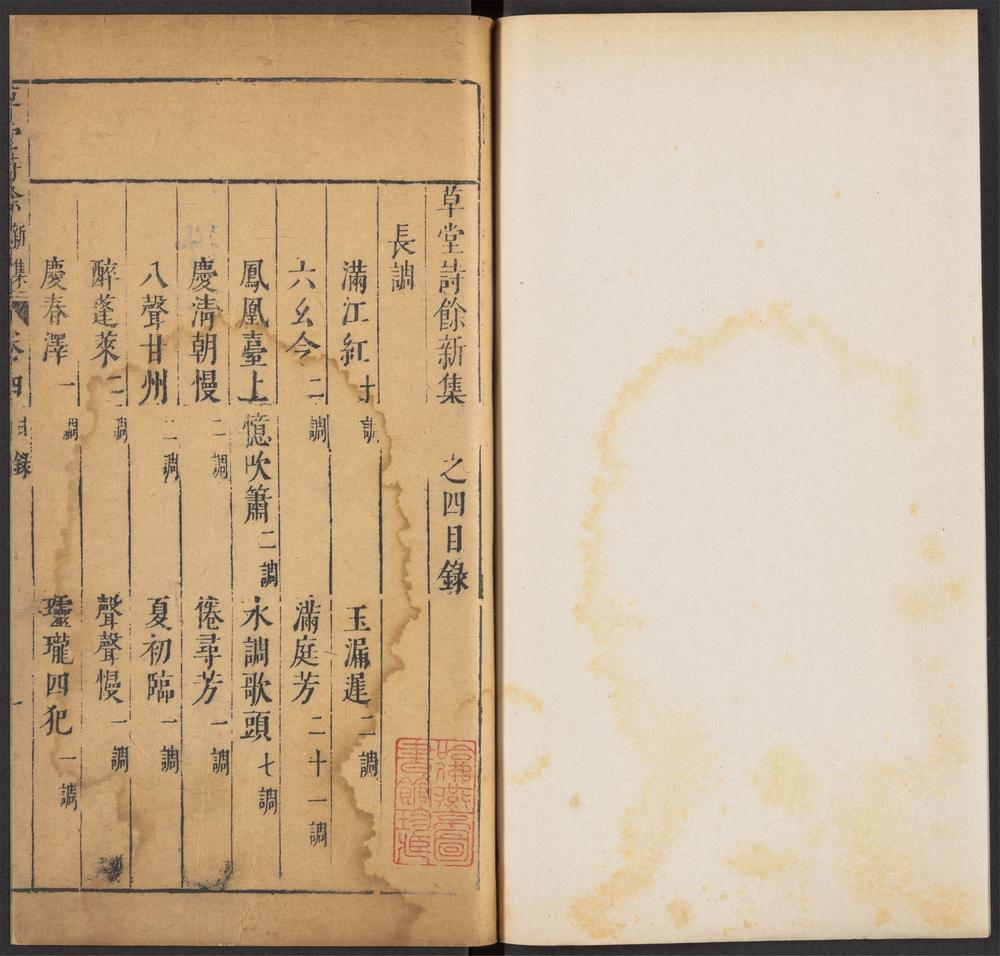 草堂詩餘新集 之四目錄
長調
滿江紅十調 玉漏遲二調
六幺今二調 滿庭芳二十一調
鳳凰臺上憶吹簫二調 水調歌頭七調
慶清朝慢二調 倦尋芳一調
八聲甘州二調 夏初臨一調
醉蓬萊二調 聲聲慢一調
慶春澤一調 瓏四犯一調
新集 卷四 目錄 一
哈佛燕京圖書館珍藏